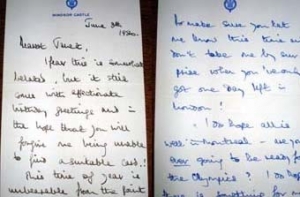 WINDSOR CASTLE
June 8th
Dearest
I fear this is somewhat
belated, but it still
comes with affectionate
birthday greetings and in
the hope that you will
forgive me being unable
to find a suitable card!
This time of year is
unbearable from the point
To make sure you let
me know this time and
don't take me by sur-
prise when you've only
got one day left in
London!
I do hope all is
well in Montreal - are you
ever going to be ready for
the Olympics? I do hope
there is something for